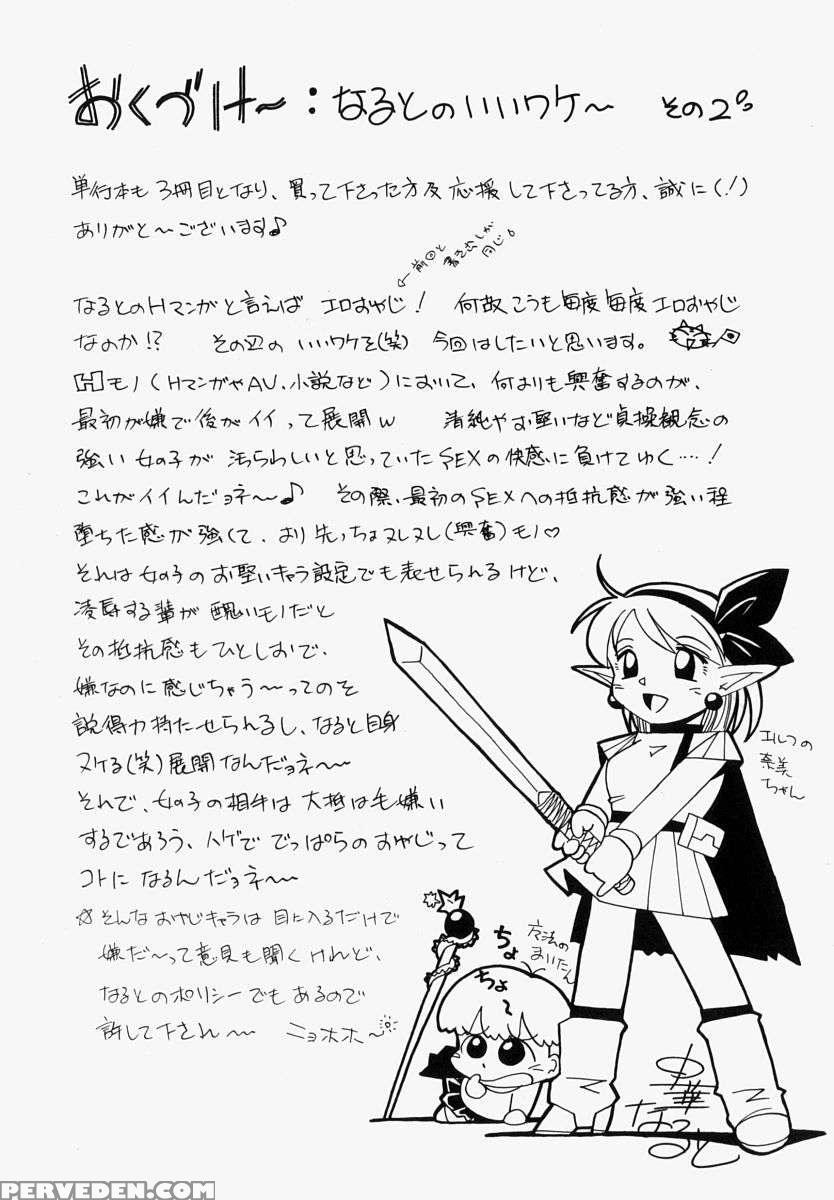 おくづけ〜：なるとのいいワケ〜 その2
単行本も3冊目となり、買って下さった方及応援して下さってる方、誠に(!)
ありがと〜ございます♪
←前回と
書き出しが
同じ
なるとのHマンガと言えば エロおやじ! 何故こうも毎度毎度エロおやじ
なのか!? その辺の いいワケを(笑) 今回はしたいと思います。
Hモノ(HマンガやAV、小説など)において、何よりも興奮するのが、
最初が嫌で後がイイって展開w 清純やお堅いなど貞操観念の
強い女の子が 汚らわしいと思っていたSEXの快感に負けてゆく…!
これがイイんだョネ〜♪ その際、最初のSEXへの抵抗感が強い程
堕ちた感が強くて、より先っちょヌレヌレ(興奮)モノ♡
それは女の子のお堅いキャラ設定でも表せられるけど、
凌辱する輩が 醜いモノだと
その抵抗感もひとしおで、
嫌なのに感じちゃう〜ってのを
説得力持たせられるし、なると自身
ヌケる(笑)展開なんだョネ〜
それで、女の子の相手は 大抵は毛嫌い
するであろう、ハゲで でっぱらのおやじって
コトに なるんだョネ〜
☆そんな おやじキャラは 目に入るだけで
嫌だ〜って意見も聞くけれど、
なるとのポリシーでもあるので
許して下され〜 ニョホホ〜
エルフの
奈美
ちゃん
魔法の
まいたん
ちょ
ちょ〜
中華
なると
PERVEDEN.COM